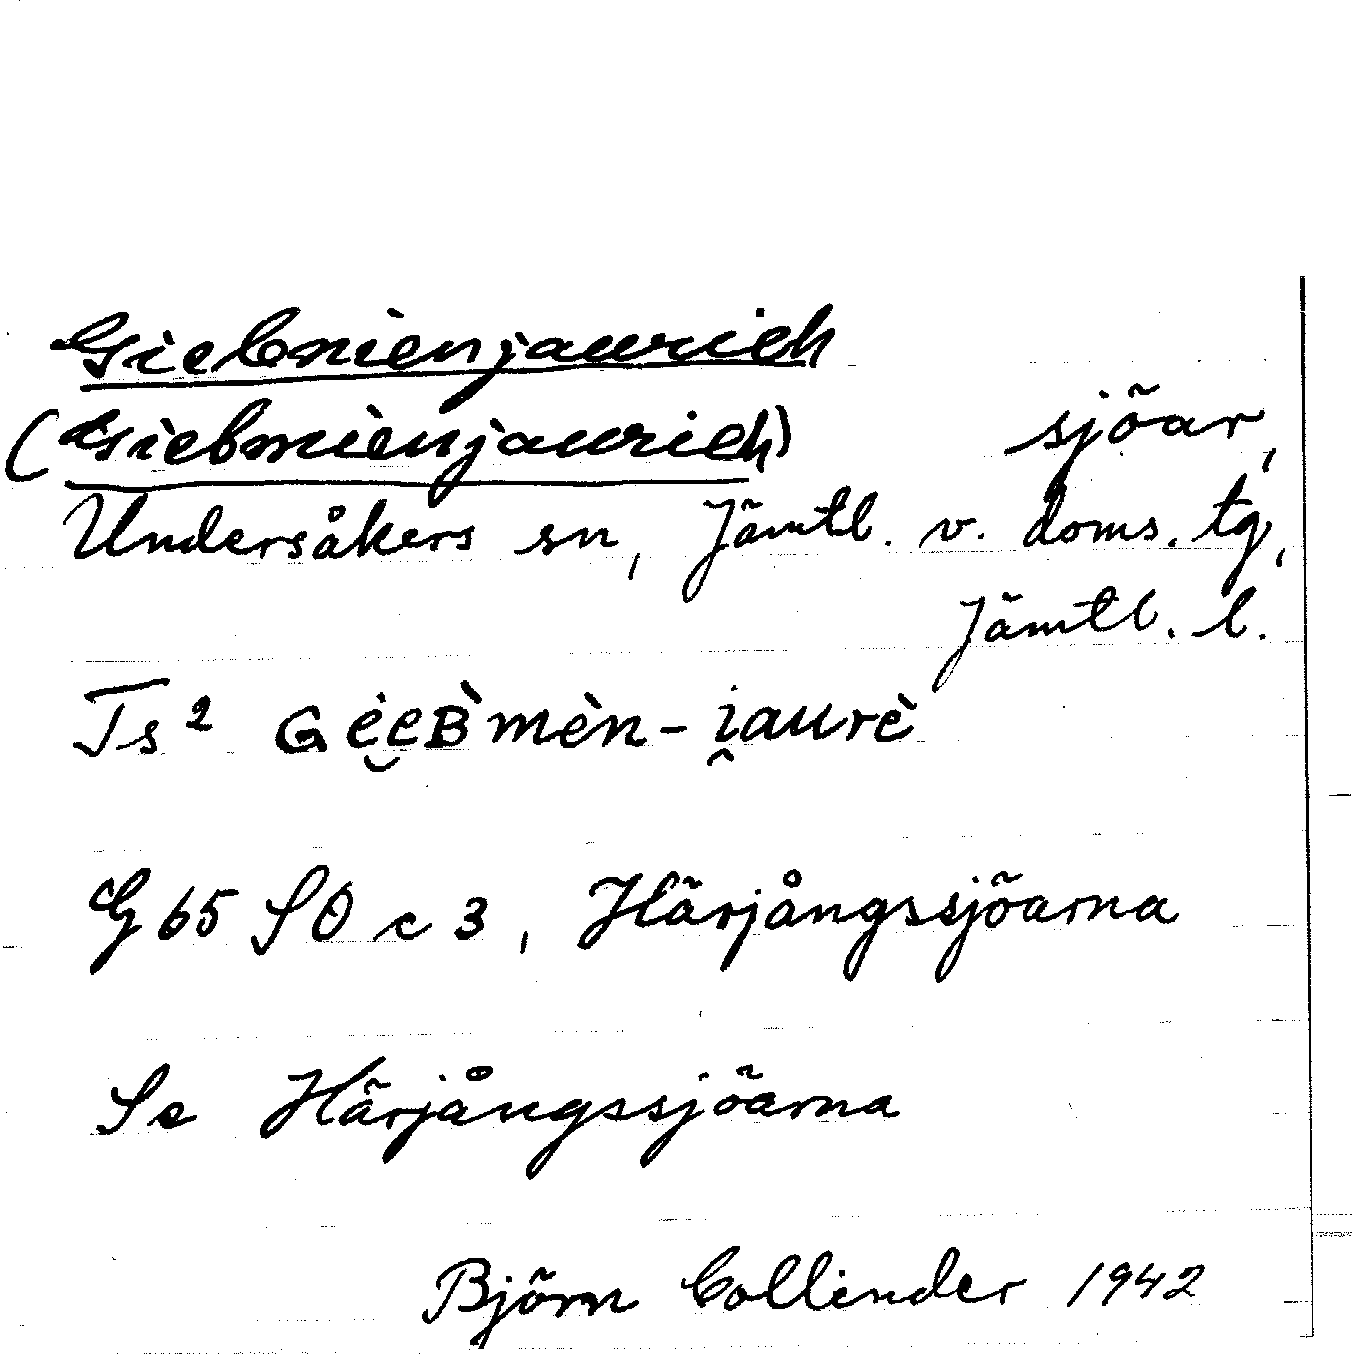 Giebnienjaurieh
(Giebmienjaurieh) sjöar,
Undersåkers sn, Jämtl. v. doms. tg,
Jämtl. l.
Ts² GėeB̀mèn-i̯aurè
G 65 SO c 3, Härjångssjöarna
Se Härjångssjöarna
Björn Collinder 1942